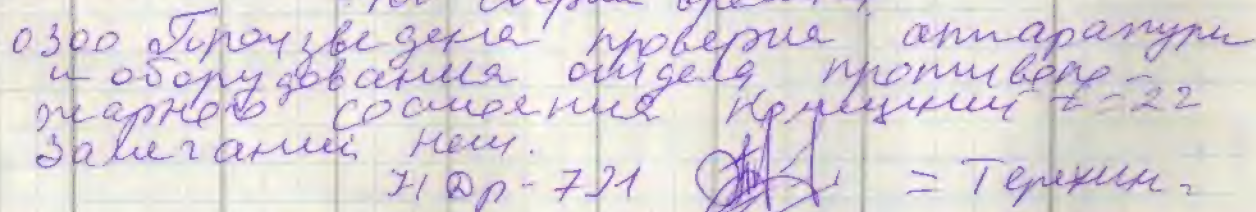 0300 Произведена проверка аппаратуры
и оборудования отдела противопо-
жарного состояния помещений t=22
Замечаний нет.
= Терехин =